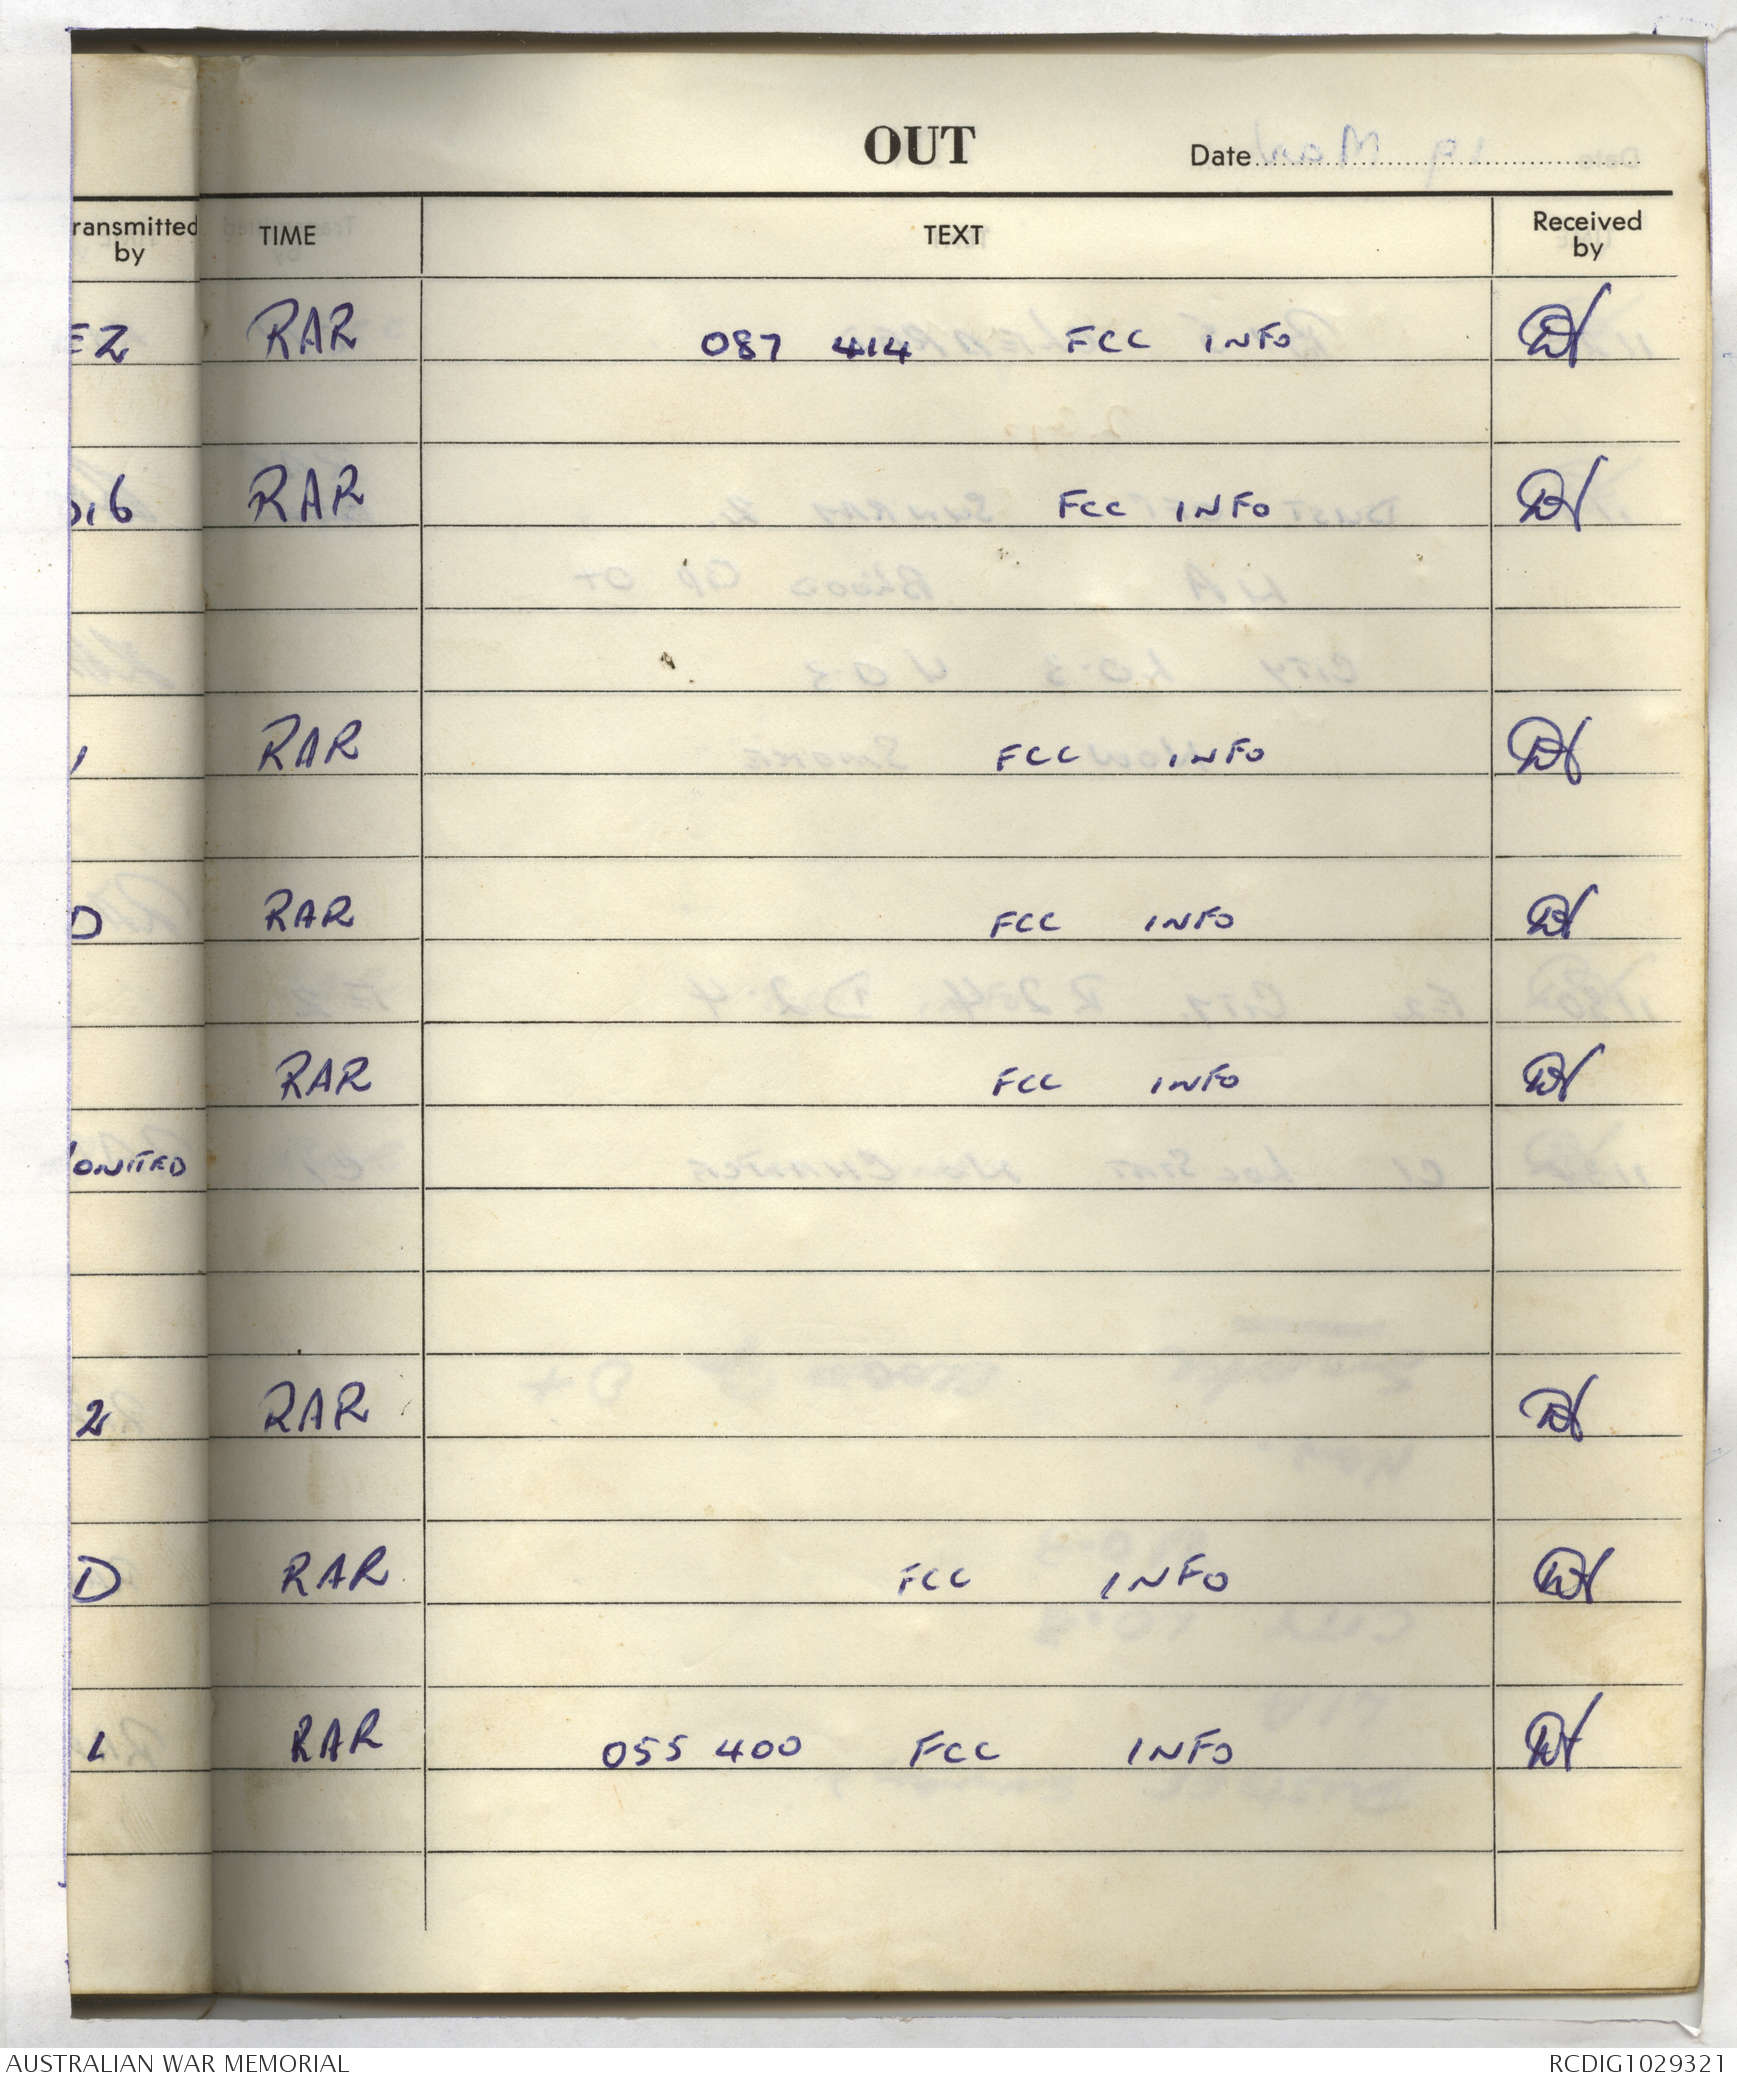 OUT
Date
ransmitted by TIME TEXT Received by
EZ RAR 087 414 FCC INFO
RAR FCC INFO
RAR FCC INFO
D RAR FCC INFO
RAR FCC INFO
ONITED
2 RAR
D RAR FCC INFO
1 RAR 055 400 FCC INFO
AUSTRALIAN WAR MEMORIAL RCDIG1029321